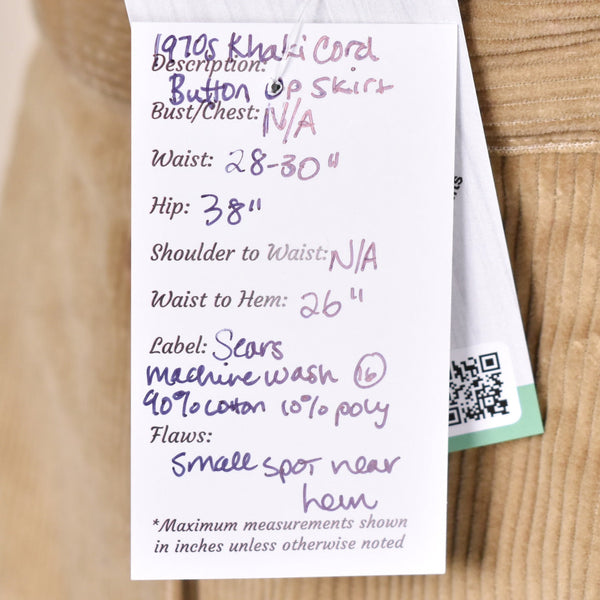 1970s Khaki Cord
Description:
Button Up Skirt
Bust/Chest: N/A
Waist: 28-30"
Hip: 38"
Shoulder to Waist: N/A
Waist to Hem: 26"
Label: Sears
machine wash 16
90% cotton 10% poly
Flaws:
Small spot near
hem
*Maximum measurements shown
in inches unless otherwise noted